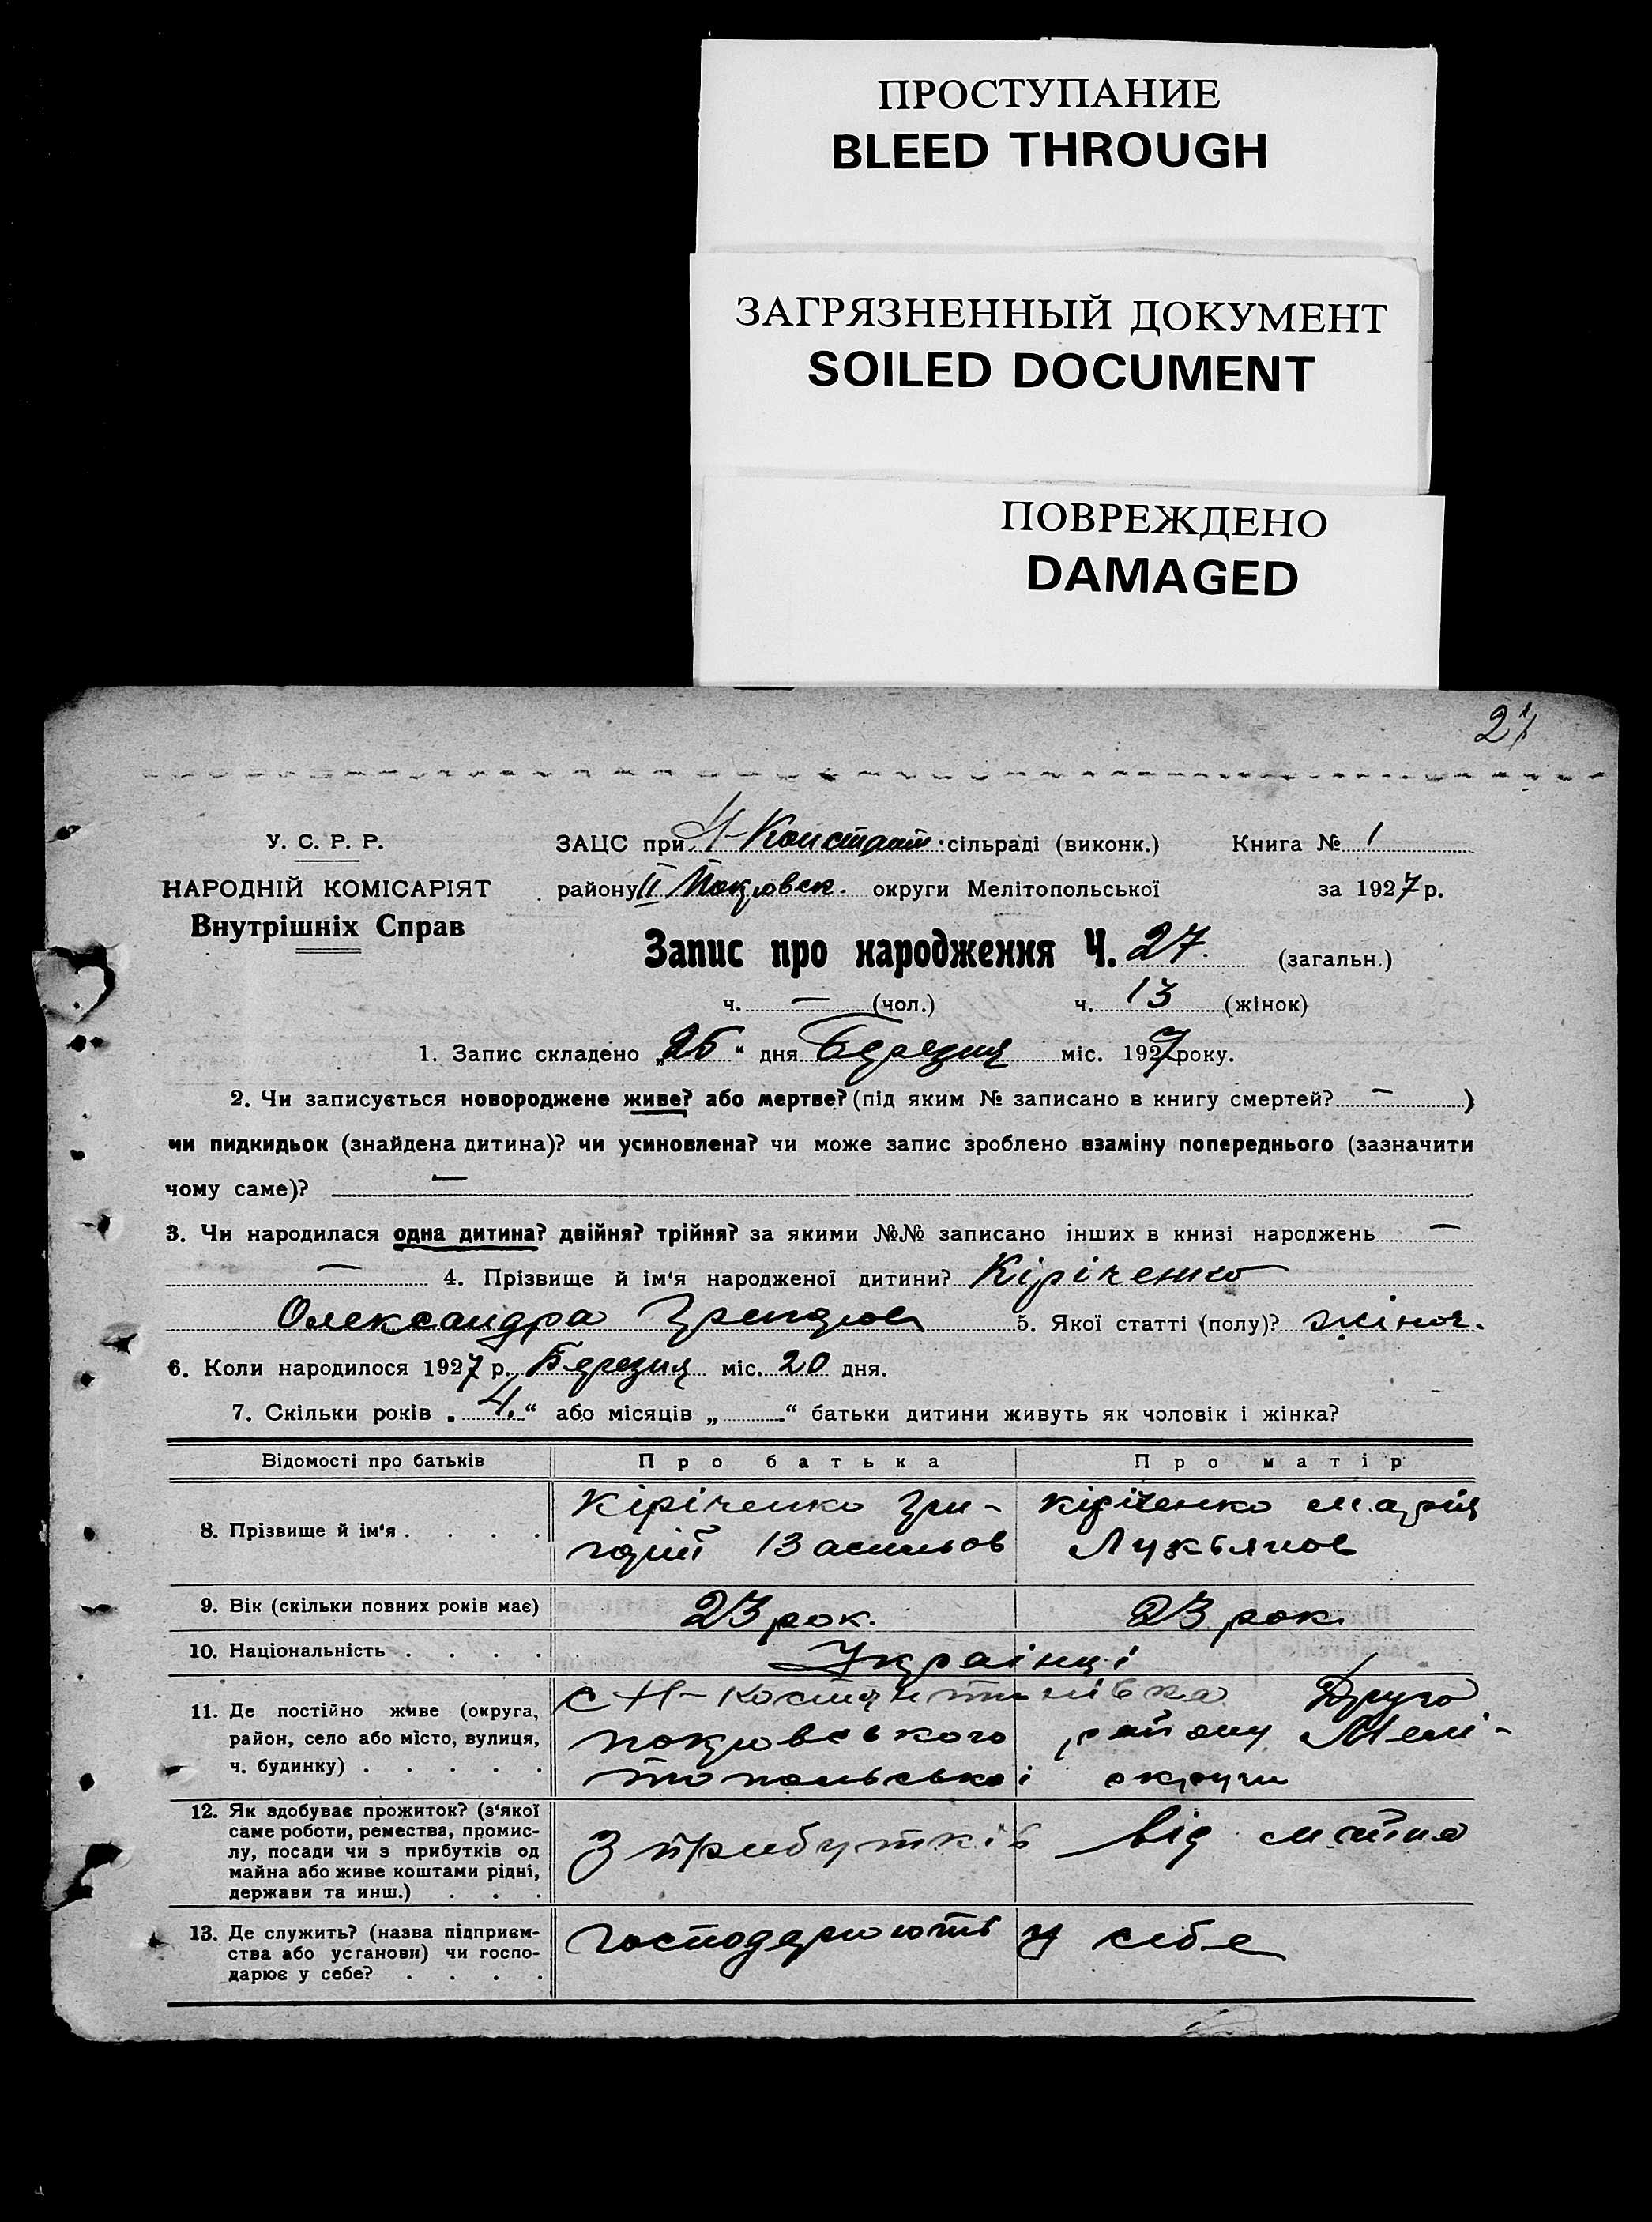 ПРОСТУПАНИЕ
BLEED THROUGH
ЗАГРЯЗНЕННЫЙ ДОКУМЕНТ
SOILED DOCUMENT
ПОВРЕЖДЕНО
DAMAGED
У. С. Р. Р.
НАРОДНІЙ КОМІСАРІЯТ
Внутрішніх Справ
ЗАЦС при Н-Констант. сільраді (виконк.) Книга № 1
району II Покровск. округи Мелітопольської за 1927 р.
Запис про народження Ч. 27. (загальн.)
ч. — (чол.) ч. 13 (жінок)
1. Запис складено „25“ дня Березня міс. 1927 року.
2. Чи записується новороджене живе? або мертве? (під яким № записано в книгу смертей? — )
чи пидкидьок (знайдена дитина)? чи усиновлена? чи може запис зроблено взаміну попереднього (зазначити
чому саме)? —
3. Чи народилася одна дитина? двійня? трійня? за якими №№ записано інших в книзі народжень —
— 4. Прізвище й ім'я народженої дитини? Кіріченко
Олександра Григоров 5. Якої статті (полу)? жіноч.
6. Коли народилося 1927 р. Березня міс. 20 дня.
7. Скільки років „4.“ або місяців „ “ батьки дитини живуть як чоловік і жінка?
Відомості про батьків Про батька Про матір
8. Прізвище й ім'я . . . .
Кіріченко Гри-
горій Васильов
Кіріченко Марія
Лукьянов
9. Вік (скільки повних років має) 23 рок. 23 рок.
10. Національність . . . . Українці
11. Де постійно живе (округа,
район, село або місто, вулиця,
ч. будинку) . . . . .
с Н-Костянтинівка Друго
покровського району Мелі-
топольської округи
12. Як здобуває прожиток? (з'якої
саме роботи, ремества, промис-
лу, посади чи з прибутків од
майна або живе коштами рідні,
держави та инш.) . . .
З прибутків від майна
13. Де служить? (назва підприєм-
ства або установи) чи госпо-
дарює у себе? . . . .
господарюють у себе